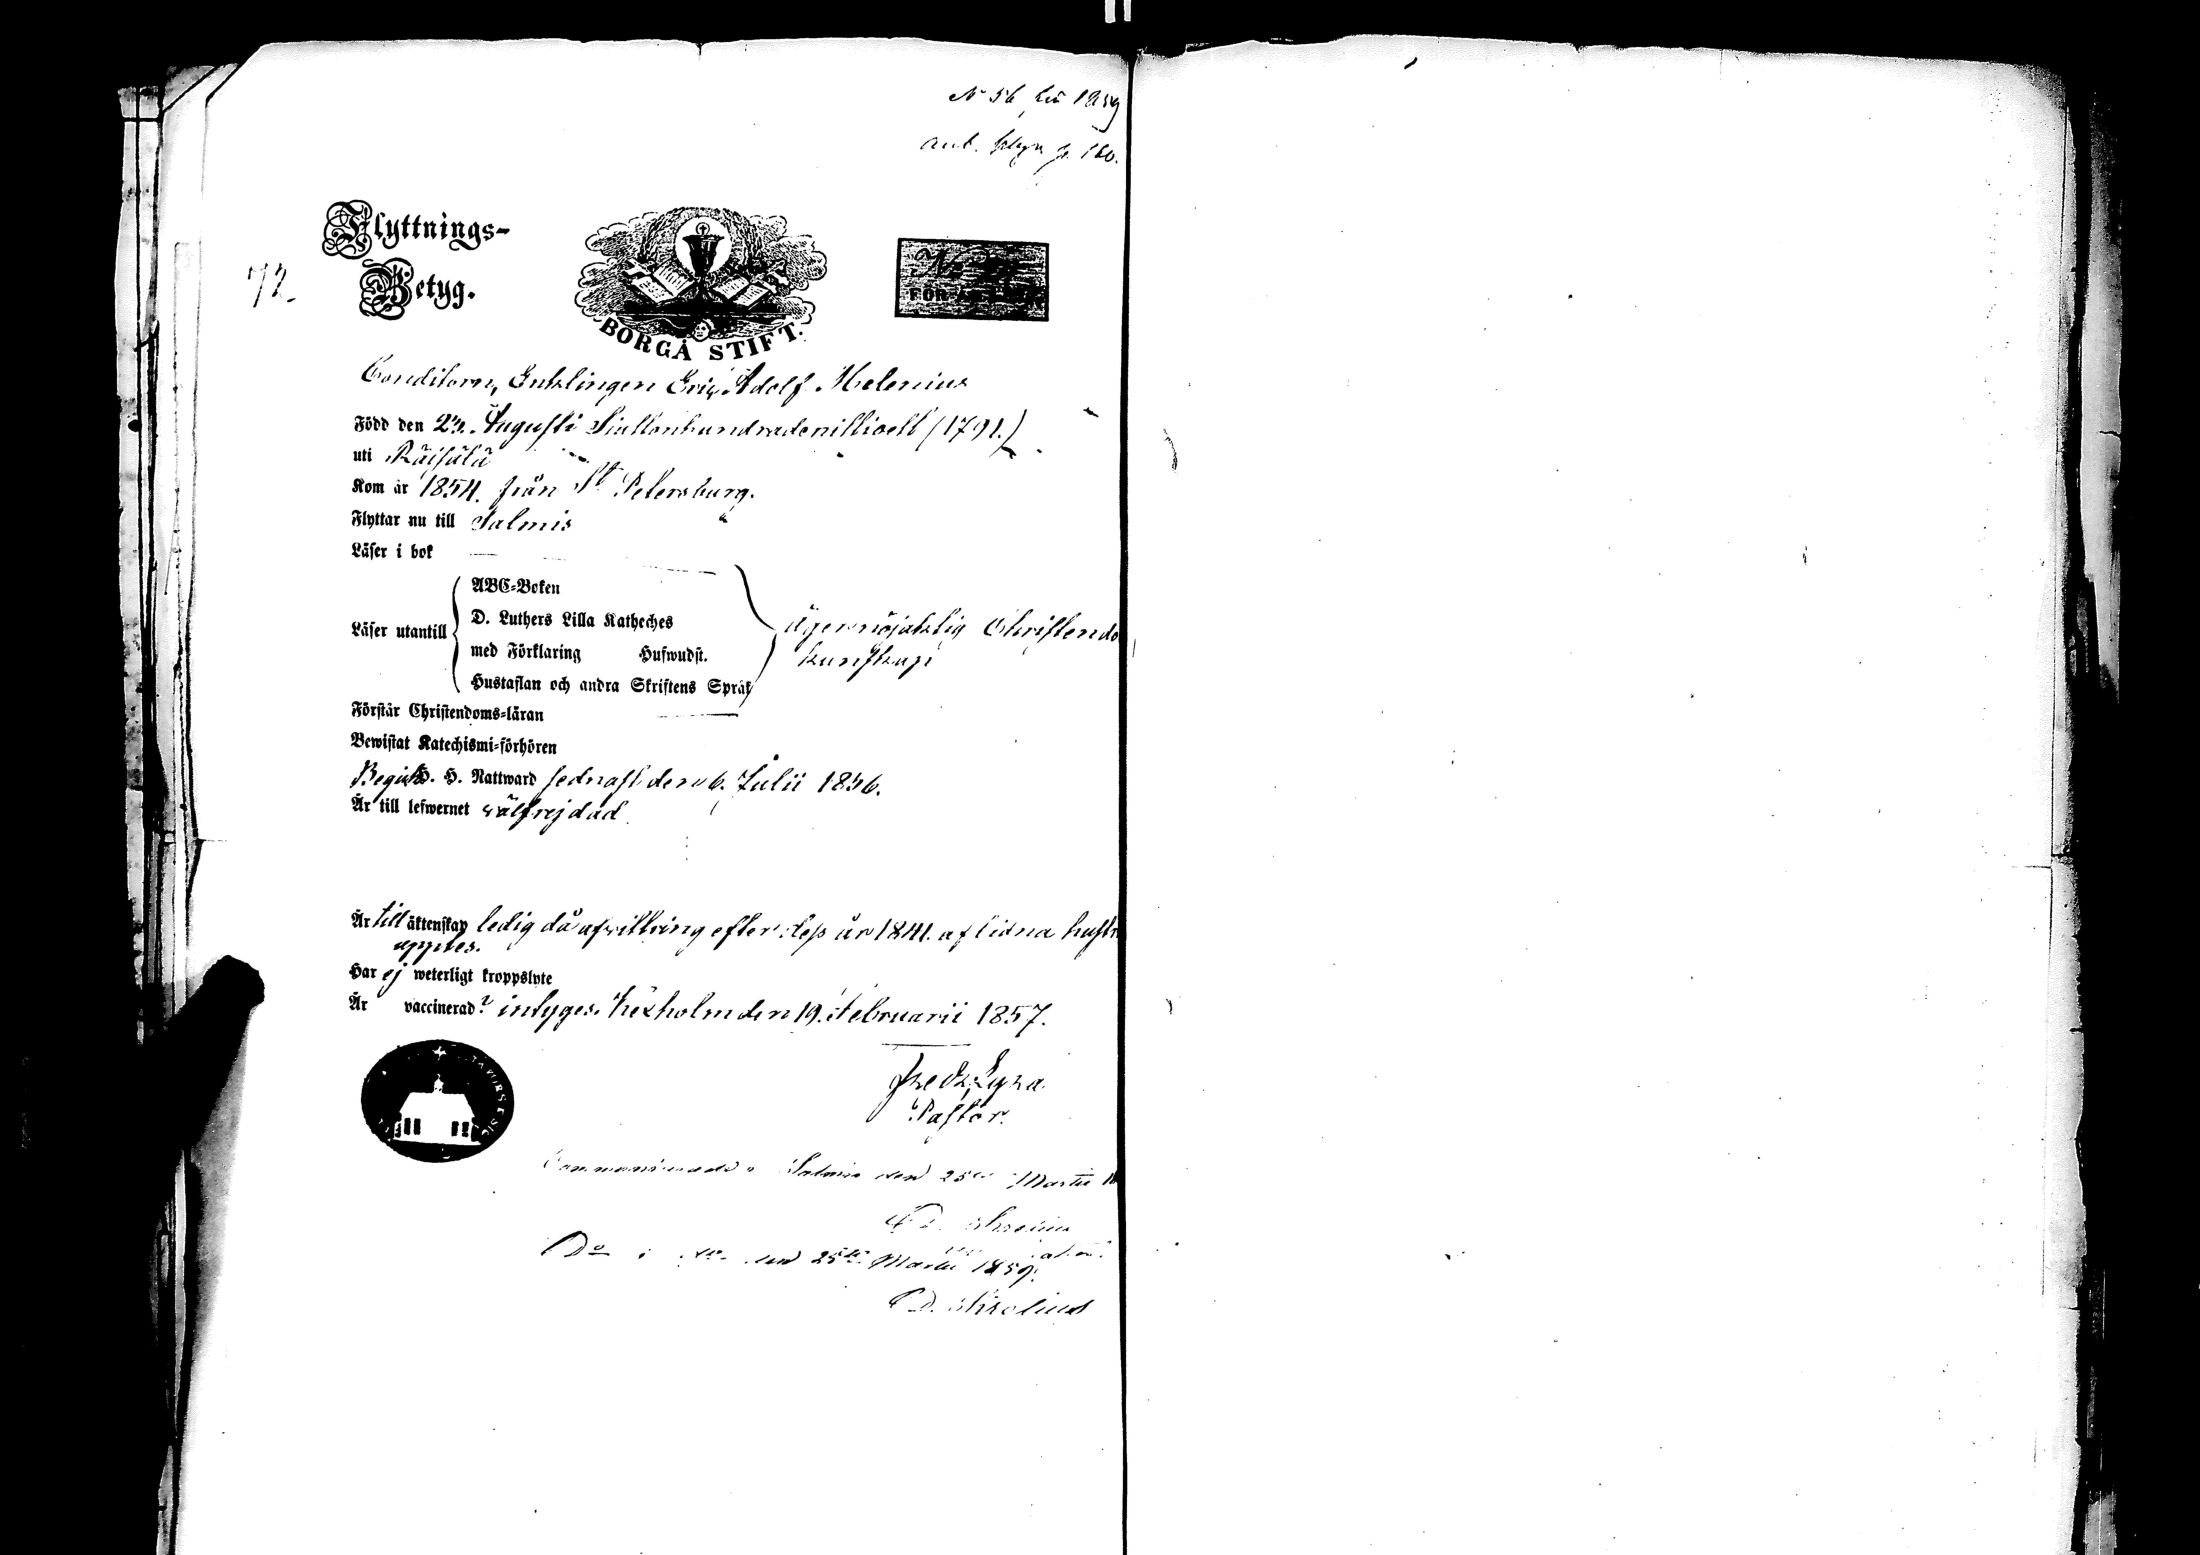 N 56 för 1859
ank. p. 160.
Flyttnings-
Betyg.
72.
BORGÅ STIFT.
No
FÖR
Conditorn, Enklingen Eric Adolf Melenius
Född den 23. Augusti Siuttonhundradenittioett (1791.)
uti Räisälä
Kom år 1854. från St Petersburg.
Flyttar nu till Salmis
Läser i bok
Läser utantill
ABC-Boken
D. Luthers Lilla Katheches
med Förklaring Hufwudst.
Hustaflan och andra Skriftens Språk
äger nöjaktig Christendo
kunskap
Förstår Christendoms-läran
Bewistat Katechismi-förhören
Begick H. H. Nattward sednast den 6. Julii 1856.
Är till lefwernet wälfrejdad
Är till äktenskap ledig då afvittring efter dess år 1841. aflidna hustr
upptes.
Har ej weterligt kroppslyte
Är vaccinerad? intyges. Kexholm den 19. Februarii 1857.
Fredr. Lyra.
Pastor.
Communicerade i Salmis den 25 Martii 18
D.
Do i do den 25 Martii 1859.
D.